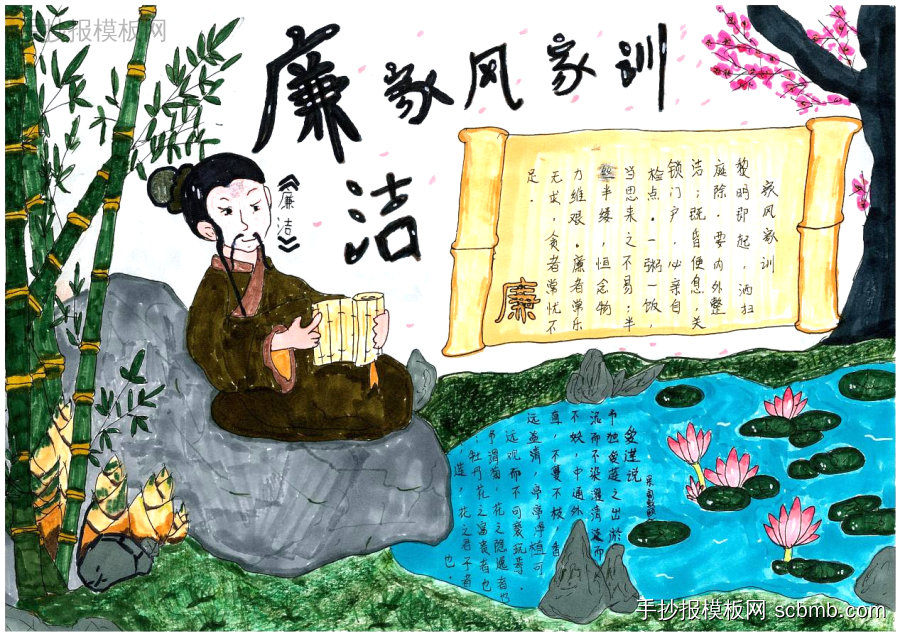 手抄报模板网
廉洁
家风家训
《廉洁》
家风家训
黎明即起,洒扫
庭除,要内外整
洁;既昏便息,关
锁门户,必亲自
检点。一粥一饭,
当思来之不易;半
丝半缕,恒念物
力维艰。廉者常乐
无求,贪者常忧不
足.
廉
爱莲说
予独爱莲之出淤
泥而不染濯清涟而
不妖,中通外
直,不蔓不枝,香
远益清,亭亭净植可
远观而不可亵玩焉.
予谓菊,花之隐逸者也
;牡丹花之富贵者也
;莲,花之君子者
也.
手抄报模板网 scbmb.com